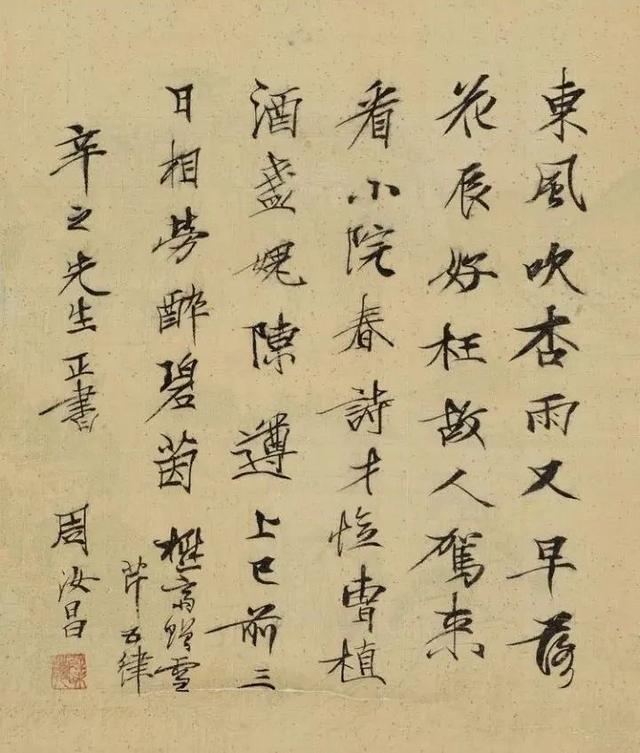 東風吹杏雨又早落
花辰好枉故人駕来
看小院春詩才憶曹植
酒盞愧陳遵上巳前三
日相勞醉碧茵 懋齋贈雪
芹五律
辛之先生正書
周汝昌